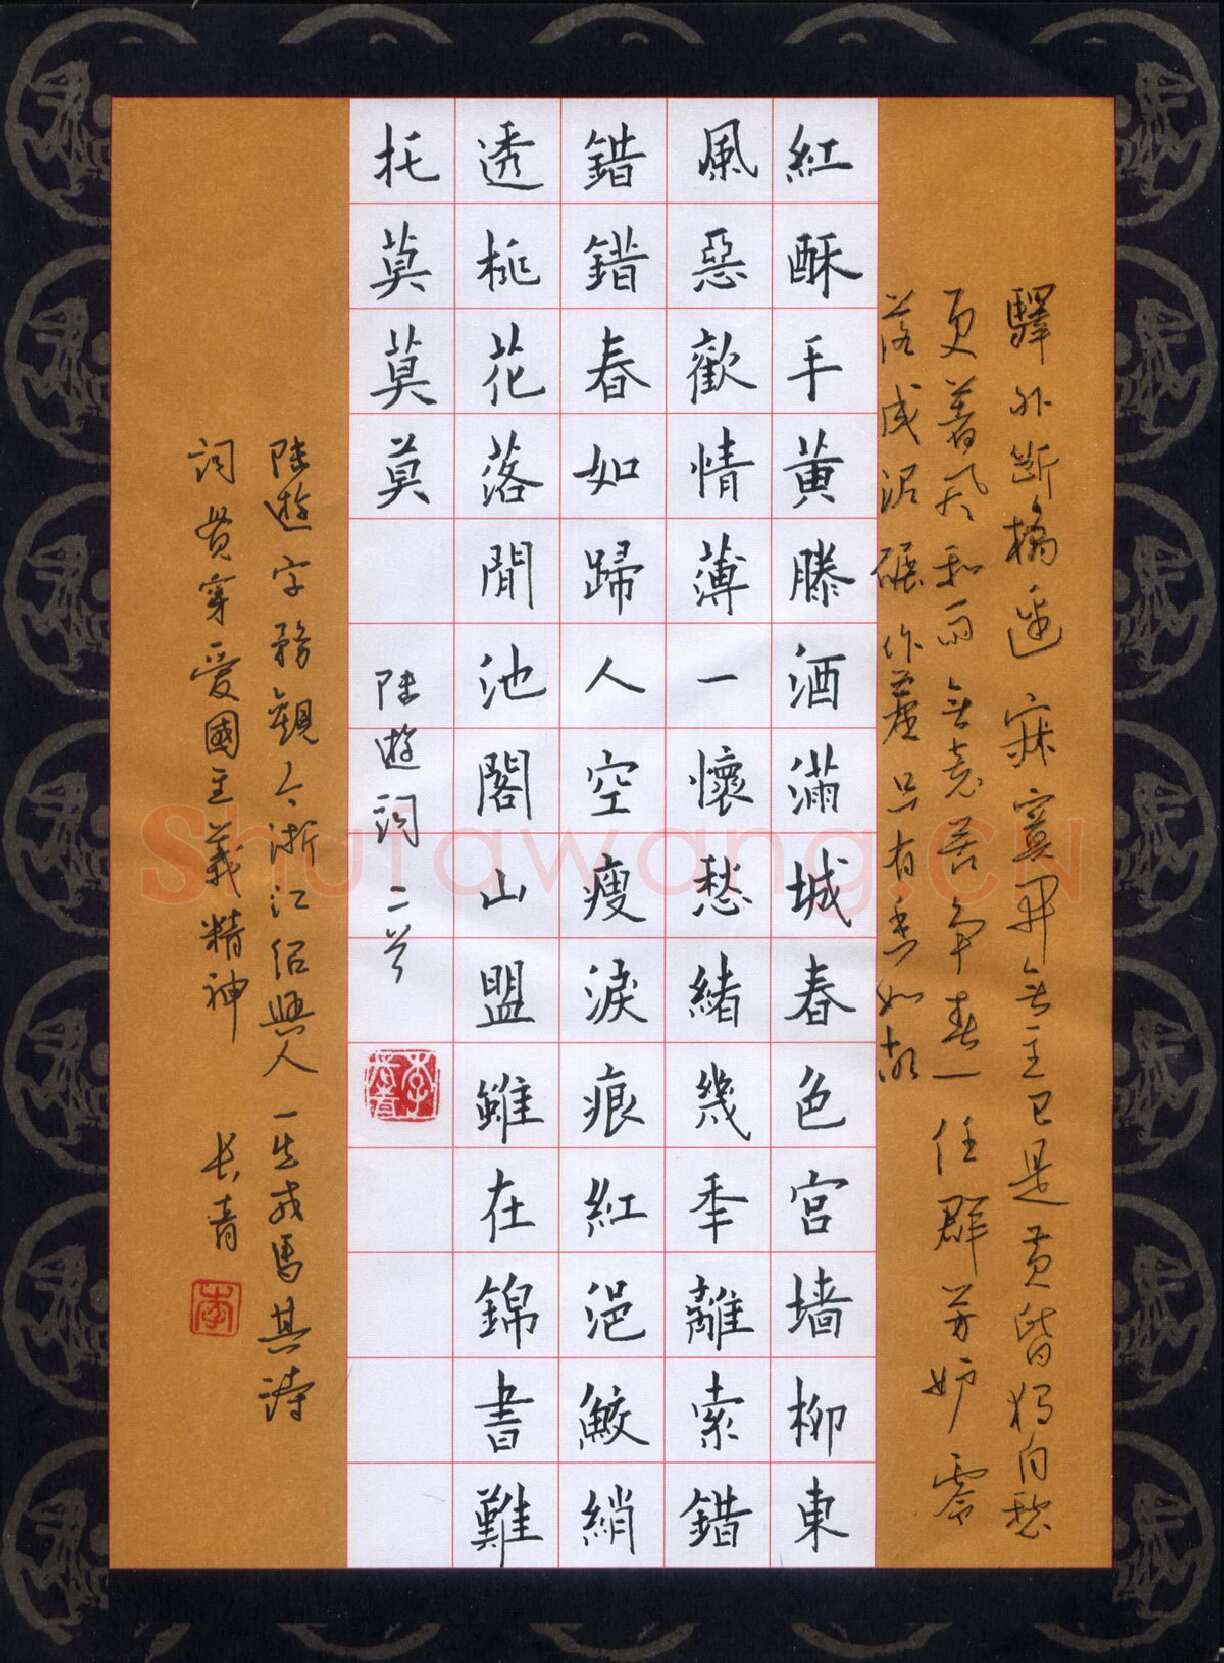 驛外斷橋邊寂寞開無主已是黄昏獨自愁
更著風和雨無意苦爭春一任群芳妒零
落成泥碾作塵只有香如故
紅酥手黄滕酒滿城春色宮墙柳東
風惡歡情薄一懷愁緒幾秊離索錯
錯錯春如歸人空瘦淚痕紅浥鮫綃
透桃花落閒池閣山盟雖在錦書難
托莫莫莫
陸遊詞二首
李長青
陸遊字務觀今浙江紹興人一生戎馬其詩
詞貫穿愛國主義精神 長青
李
Shufawang.CN